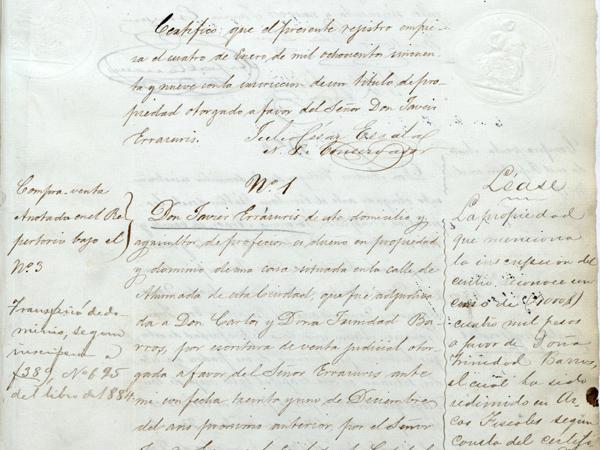 Certifico: que el presente registro empie-
za el cuatro de Enero de mil ochocientos cincuen-
ta y nueve con la inscripcion de un titulo de pro-
piedad otorgado a favor del Señor Don Javier
Errazuris. Julio Cesar Escala
N. P. Conservador
Nº 1
Compra-venta
Anotada en el Re-
pertorio bajo el
Nº 3
Transfirió el do-
minio, segun
inscripn a
f 389, Nº 625
del libro de 1884
Don Javier Errázuris de este domicilio y
agricultor de profesion es dueno en propiedad
y dominio de una casa situada en la calle de
Ahumada de esta Ciudad, que fué adjudica-
da a Don Carlos y Dona Trinidad Ba-
rros, por escritura de venta judicial otor-
gada a favor del Señor Errazuris ante
mi con fecha treinta y uno de Diciembre
del ano proximo anterior, por el Señor
Léase
La propiedad
que menciona
la inscripcion del
centro, reconoce un
censo de
cuatro mil pesos
a favor de Dona
Trinidad Barros,
el cual ha sido
redimido en Ar-
cas Fiscales segun
consta del certifi